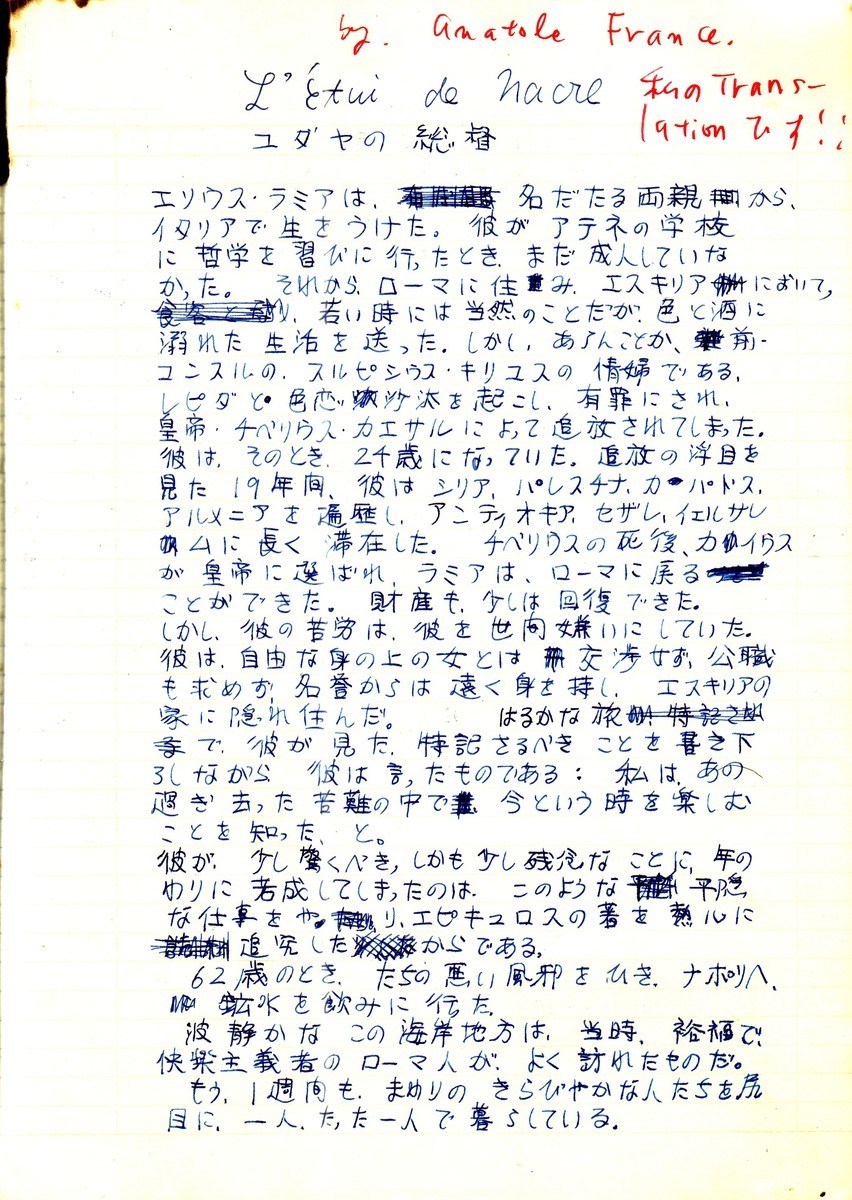 by. Anatole France.
L'Étui de Nacre 私のTrans-
lationです!!
ユダヤの総督
エリウス・ラミアは、名だたる両親から、
イタリアで生をうけた。彼がアテネの学校
に哲学を習びに行ったとき、まだ成人していな
かった。それから、ローマに住み、エスキリアにおいて、
若い時には当然のことだが、色と酒に
溺れた生活を送った。しかし、あらんことか、前-
コンスルの、スルピシウス・キリユスの情婦である、
レピダと色恋沙汰を起こし、有罪にされ、
皇帝・チベリウス・カエサルによって追放されてしまった。
彼は、そのとき、24歳になっていた。追放の浮目を
見た19年間、彼はシリア、パレスチナ、カッパドス、
アルメニアを遍歴し、アンティオキア、セザレ、イェルサレ
ムに長く滞在した。チベリウスの死後、カイウス
が皇帝に選ばれ、ラミアは、ローマに戻る
ことができた。財産も、少しは回復できた。
しかし、彼の苦労は、彼を世間嫌いにしていた。
彼は、自由な身の上の女とは交渉せず、公職
も求めず、名誉からは遠く身を持し、エスキリアの
家に隠れ住んだ。はるかな旅
で、彼が見た、特記さるべきことを書き下
ろしながら、彼は言ったものである：私は、あの
過ぎ去った苦難の中で、今という時を楽しむ
ことを知った、と。
彼が、少し驚くべき、しかも少し残念なことに、年の
わりに老成してしまったのは、このような平隠
な仕事をやり、エピキュロスの著を熱心に
追究したからである。
62歳のとき、たちの悪い風邪をひき、ナポリへ、
鉱水を飲みに行った。
波静かなこの海岸地方は、当時、裕福で、
快楽主義者のローマ人が、よく訪れたものだ。
もう、1週間も、まわりのきらびやかな人たちを尻
目に、一人、たった一人で暮らしている。